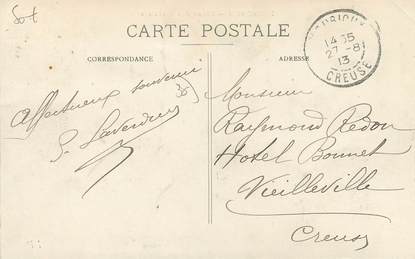 CARTE POSTALE
CORRESPONDANCE
ADRESSE
14 35
27-8
13
CREUSE
Affectueux souvenir
Monsieur
Raymond Redon
Hotel Bonnet
Vieilleville
Creuse